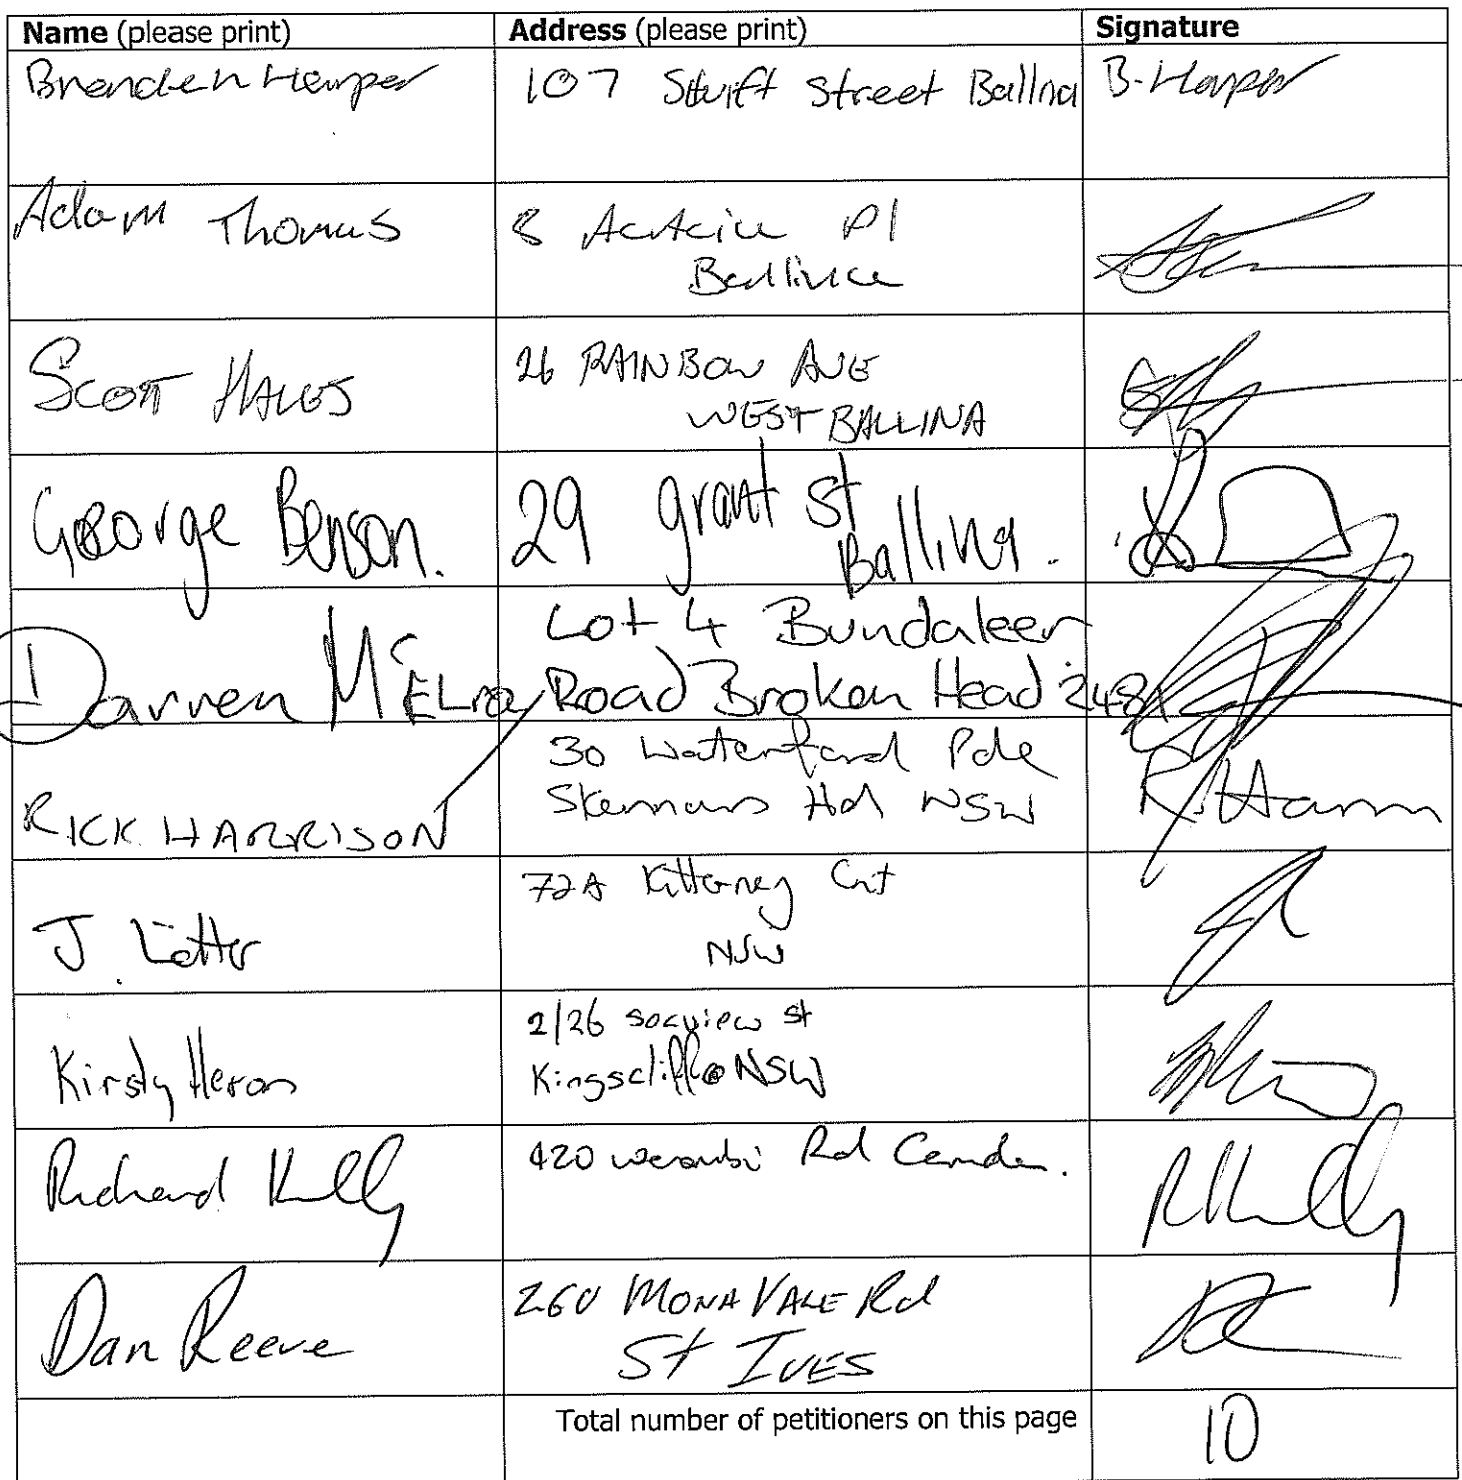 Name (please print) Address (please print) Signature
Brenden Harper 107 Swift Street Ballina B. Harper
Adam Thomas 8 Acacia Pl
Ballina
SCOTT HALES 26 RAINBOW AVE
WEST BALLINA
George Benson. 29 grant St
Ballina.
Darren McELroy Lot 4 Bundaleer
Road Broken Head 2481
RICK HARRISON 30 Waterford Pde
Skennars Hd NSW
J. Lotter 72A Killarney Crt
NSW
Kirsty Heron 2/26 seaview st
Kingscliffe NSW
Richard Kelly 420 werombi Rd Camden. RKelly
Dan Reeve 260 MONA VALE Rd
St IVES
Total number of petitioners on this page 10